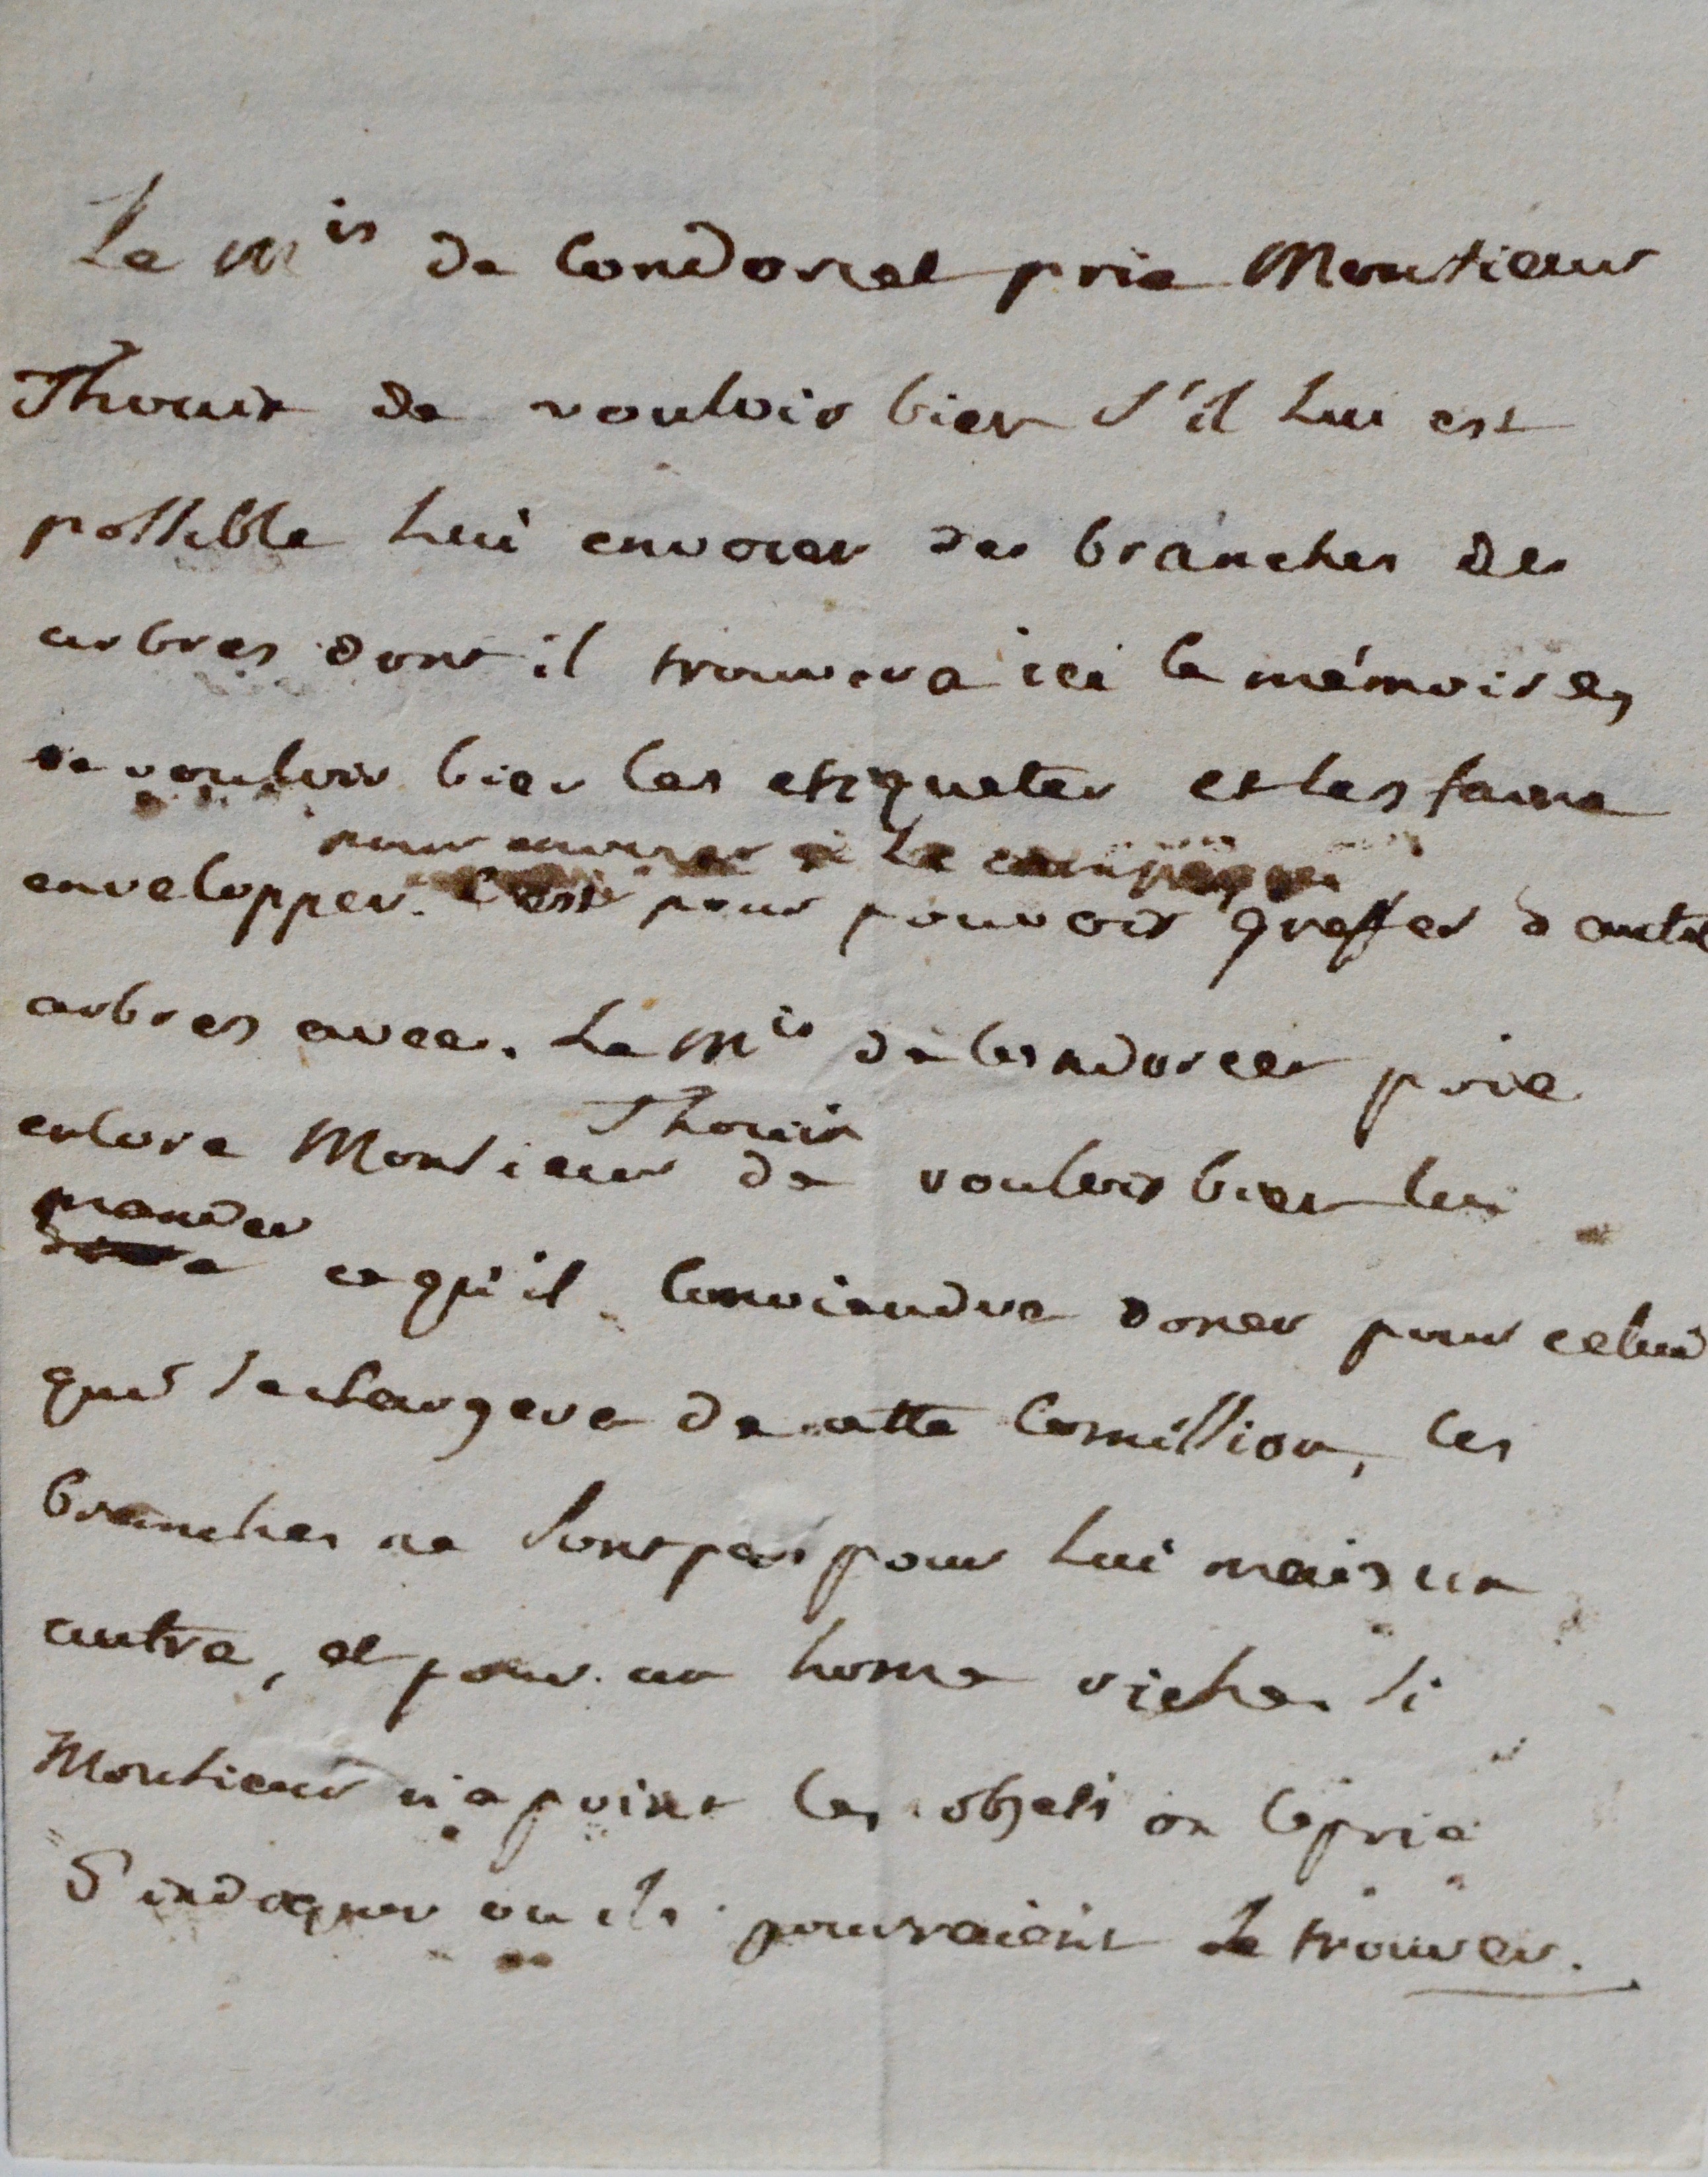 Le Mis de Condorcet prie Monsieur
Thouin de vouloir bien s'il lui est
possible lui envoier des branches des
arbres dont il trouvera ici le mémoire,
de vouloir bien les etiqueter et les faire
pour envoyer à la campagne
envelopper. C'est pour pouvoir greffer d'autres
arbres avec. Le Mis de Condorcet prie
Thouin
encore Monsieur de vouloir bien lui
mander
dire ce qu'il conviendra doner pour celui
qui se chargera de cette comission, les
branches ne sont pas pour lui mais un
autre, et pour un home riche. Si
Monsieur n'a point les objets on le prie
d'indiquer ou ils pourraient se trouver.